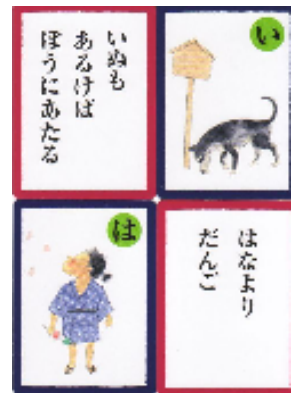 いぬも
あるけば
ぼうにあたる
い
は
はなより
だんご